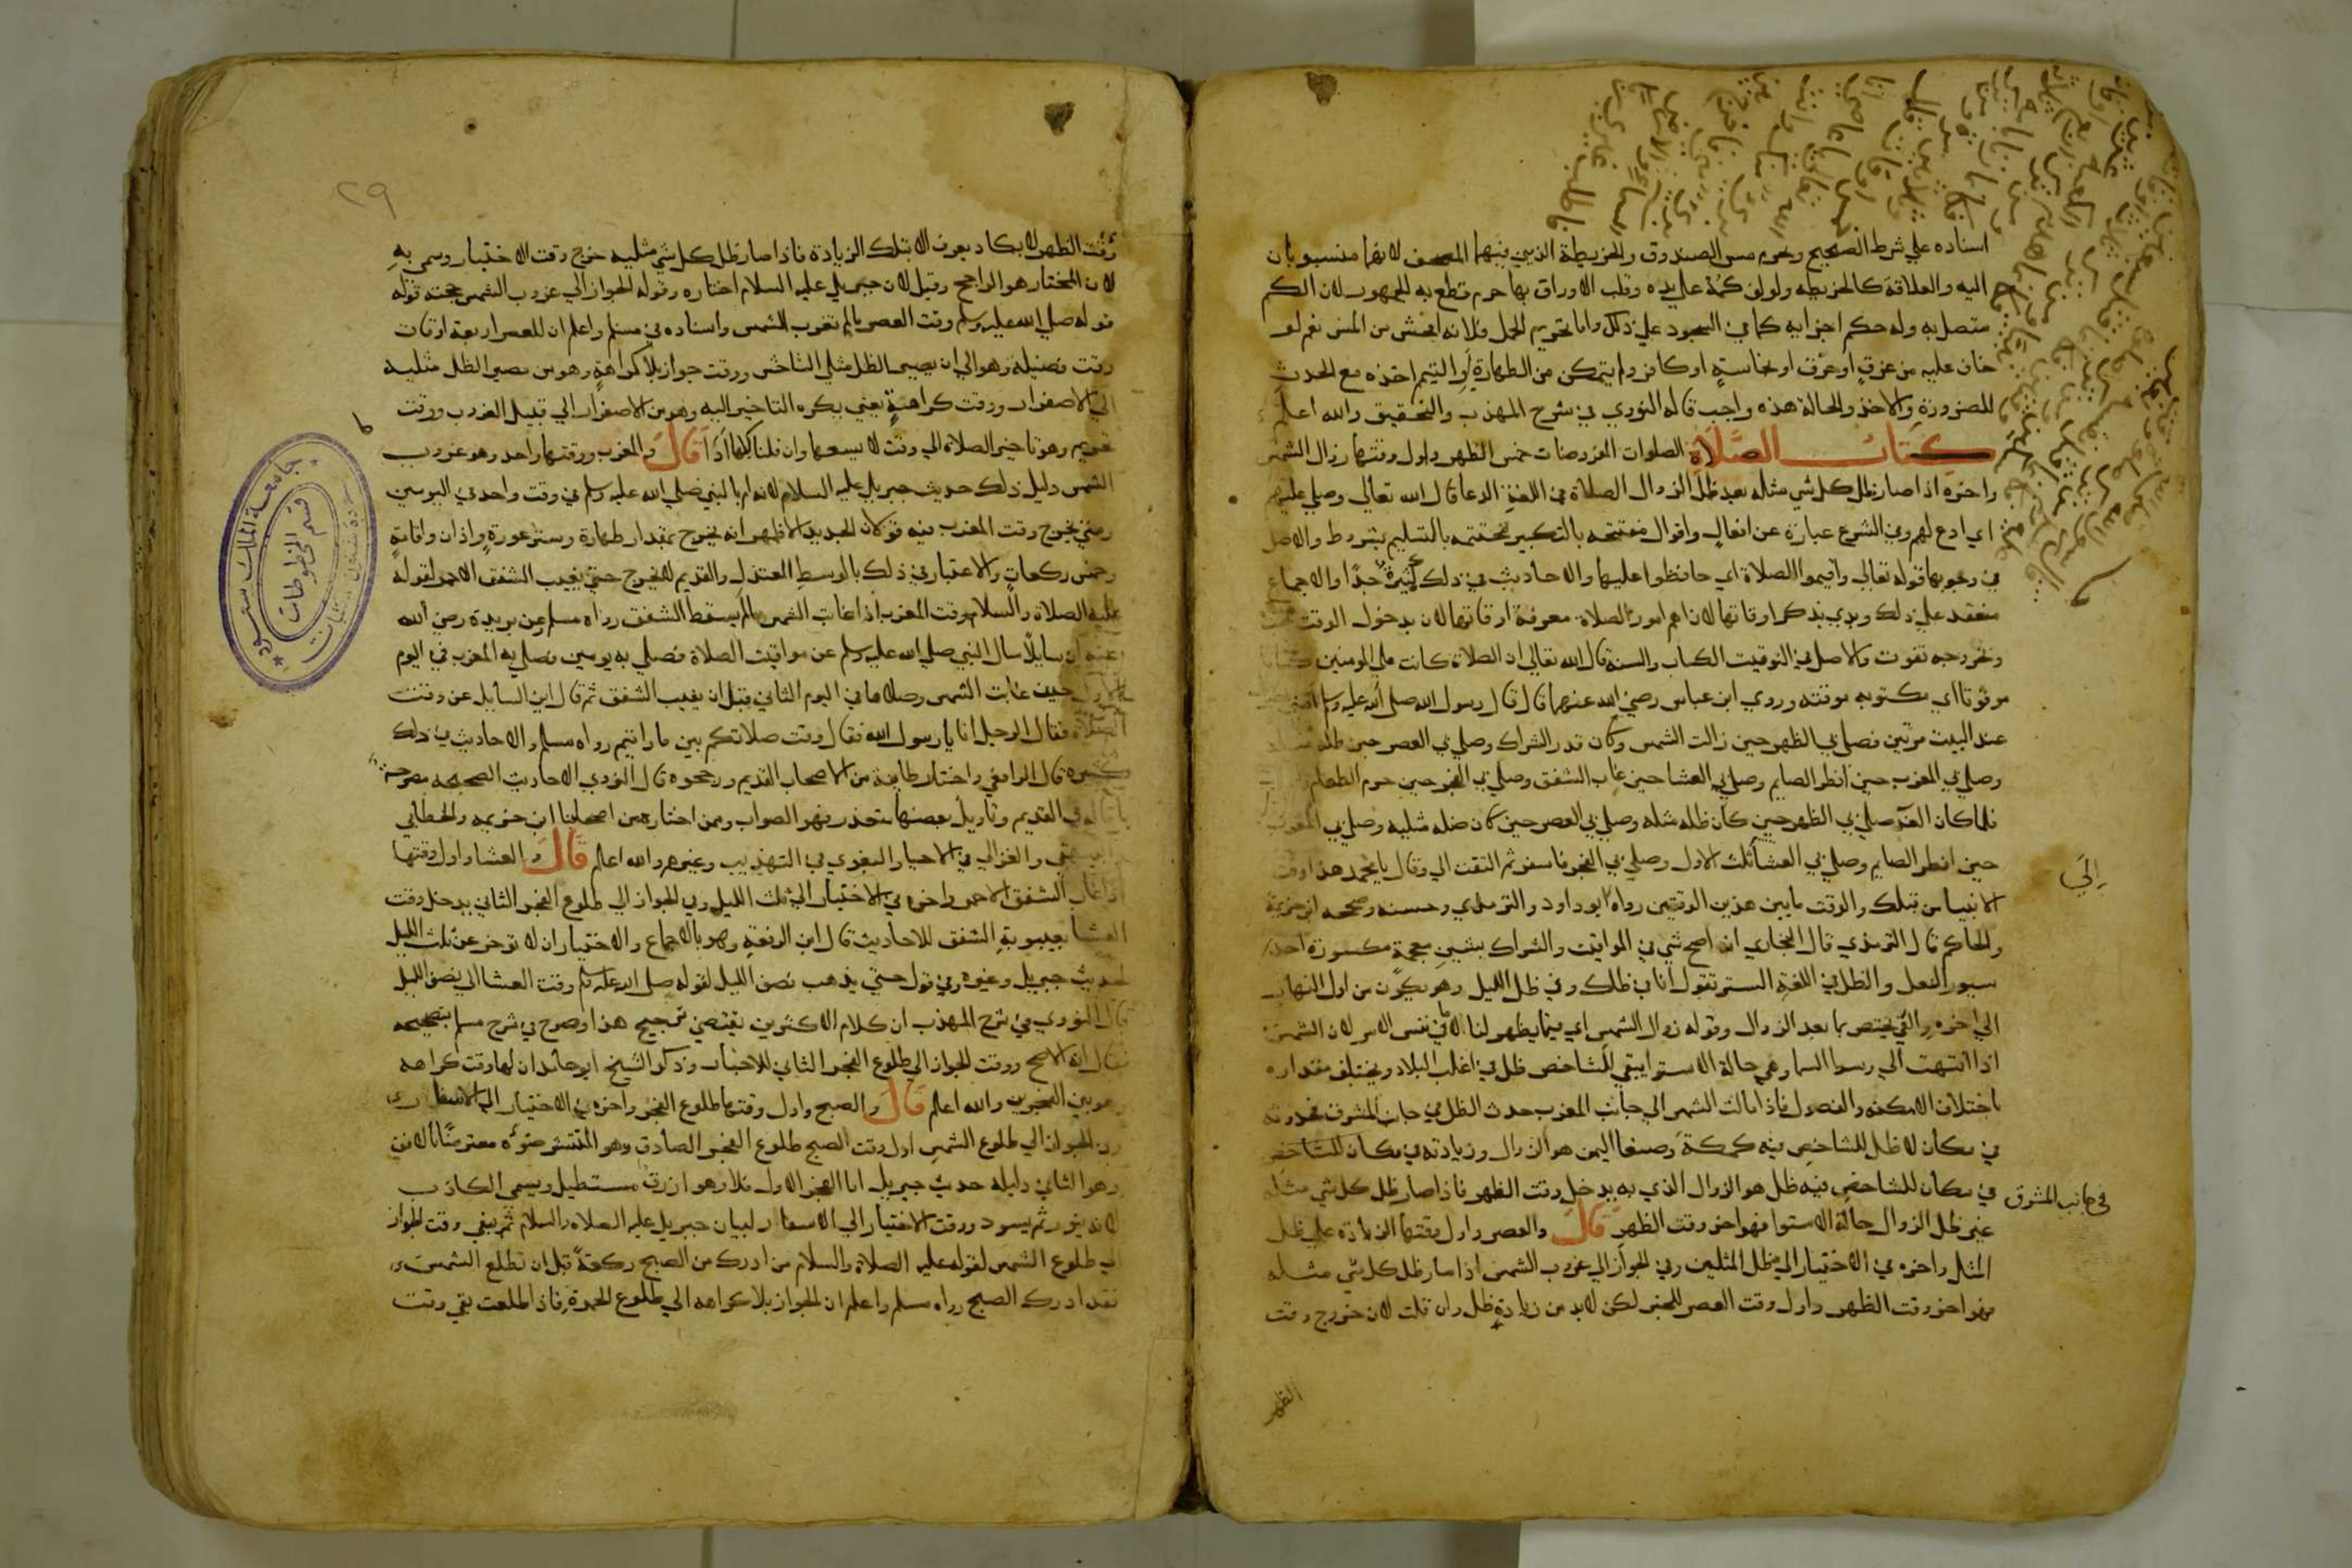 اسناده علي شرط الصحيح ويحرم مس الصندوق والخريطة الذي فيهما المصحف لانهما منسوبان
اليه والعلاقة كالخريطه ولو لف كمه علي يده وقلب الاوراق بها حرم قطع به الجمهور لان الكم
متصل به وله حكم اجزايه كما في السجود علي ذلك واما تحريم الحمل فلانه افحش من المس نعم لو
خاف عليه من غرقٍ او حرق او نجاسةٍ او كافر ولم يتمكن من الطهارة او التيمم اخذه مع الحدث
للضرورة والاخذ والحالة هذه واجب قاله النووي في شرح المهذب والتحقيق والله اعلم
كتاب الصَّلَاةِ الصلوات المفروضات خمس الظهر واول وقتها زوال الشمس
واخره اذا صار ظل كل شي مثله بعد ظل الزوال الصلاة في اللغة الدعا قال الله تعالي وصلي عليهم
اي ادع لهم وفي الشرع عبارة عن افعالٍ واقوال مفتتحه بالتكبير مختتمه بالتسليم بشروط والاصل
في وجوبها قوله تعالي واقيموا الصلاة اي حافظوا عليها والاحاديث في ذلك كثيرةٌ جدًّا والاجماع
منعقد علي ذلك وبدي بذكر اوقاتها لان اهم امور الصلاة معرفة اوقاتها لان بدخول الوقت تجب
وبخروجه تفوت والاصل في التوقيت الكتاب والسنة قال الله تعالي ان الصلاة كانت علي المومنين كتابا
موقوتا اي مكتوبه موقته وروي ابن عباس رضي الله عنهما قال قال رسول الله صلى الله عليه وسلم
عند البيت مرتين فصلي بي الظهر حين زالت الشمس وكان قدر الشراك وصلي بي العصر حين ظله
وصلي بي المغرب حين افطر الصايم وصلي بي العشا حين غاب الشفق وصلي بي الفجر حين حرم الطعام
فلما كان الغد صلي بي الظهر حين كان ظله مثله وصلي بي العصر حين كان ظله مثليه وصلي بي المغرب
حين افطر الصايم وصلي بي العشا ثلث الاول وصلي بي الفجر فاسفر ثم التفت الي وقال يا محمد هذا وقت
الانبيا من قبلك والوقت ما بين هذين الوقتين رواه ابو داود والترمذي وحسنه وصححه ابن خزيمة
والحاكم قال الترمذي قال البخاري انه اصح شي في المواقيت والشراك بشينٍ معجمةٍ مكسورة احد
سيور النعل والظل في اللغة الستر تقول انا في ظلك وفي ظل الليل وهو يكون من اول النهار
الي اخره والفي يختص بما بعد الزوال وقوله زوال الشمس اي فيما يظهر لنا لا في نفس الامر لان الشمس
اذا انتهت الي وسط السما وهي حالة الاستوا يبقي للشاخص ظل في اغلب البلاد ويختلف مقداره
باختلاف الامكنه والفصول فاذا مالت الشمس الي جانب المغرب حدث الظل في جانب المشرق فحدوثه
في مكان لا ظل للشاخص فيه كمكة وصنعا اليمن هو الزوال وزيادته في مكان للشاخص
في مكان للشاخص فيه ظل هو الزوال الذي به يدخل وقت الظهر فاذا صار ظل كل شي مثله
غير ظل الزوال حالة الاستوا فهو اخر وقت الظهر قَالَ والعصر واول وقتها الزياده علي ظل
المثل واخره في الاختيار الي ظل المثلين وفي الجواز الي غروب الشمس اذا صار ظل كل شي مثله
فهو اخر وقت الظهر واول وقت العصر للخبر لكن لابد من زيادةِ ظل وان قلت لان خروج وقت
الظهر
اِلَي
في جانب المشرق
٢٩
وقت الظهر لا يكاد يعرف الا بتلك الزيادة فاذا صار ظل كل شي مثليه خرج وقت الاختيار وسمي به
لان المختار هو الراجح وقيل لان جبريل عليه السلام اختاره وقوله الجواز الي غروب الشمس حجته قوله
قوله صلي الله عليه وسلم وقت العصر ما لم تغرب الشمس واسناده في مسلم واعلم ان للعصر اربعة اوقات
وقت فضيلة وهو الي ان يصير الظل مثلي الشاخص ووقت جواز بلا كراهةٍ وهو من مصير الظل مثليه
الي الاصفرار ووقت كراهيةٍ يعني يكره التاخير اليه وهو من الاصفرار الي قبيل الغروب ووقت
تحريم وهو تاخير الصلاة الي وقت لا يسعها وان قلنا كلها اداءً قَالَ والمغرب ووقتها واحد وهو غروب
الشمس دليل ذلك حديث جبريل عليه السلام لانه ام بالنبي صلي الله عليه وسلم في وقت واحد في اليومين
ومتي يخرج وقت المغرب فيه قولان الجديد الاظهر انه يخرج بمقدار طهارة وستر عورةٍ واذان واقامةٍ
وخمس ركعاتٍ والاعتبار في ذلك بالوسط المعتدل والقديم لا يخرج حتي يغيب الشفق الاحمر لقوله
عليه الصلاة والسلام وقت المغرب اذا غابت الشمس ما لم يسقط الشفق رواه مسلم وعن بريدة رضي الله
عنه ان سايلًا سال النبي صلي الله عليه وسلم عن مواقيت الصلاة فصلي به يومين فصلي به المغرب في اليوم
الاول حين غابت الشمس وصلاها في اليوم الثاني قبل ان يغيب الشفق ثم قال اين السايل عن وقت
الصلاة فقال الرجل انا يا رسول الله فقال وقت صلاتكم بين ما رايتم رواه مسلم والاحاديث في ذلك
كثيره قال الرافعي واختار طايفة من الاصحاب القديم ورجحوه قال النووي الاحاديث الصحيحه مصرحة
في القديم وتاويل بعضها متعذر فهو الصواب وممن اختاره من اصحابنا ابن خزيمه والخطابي
والغزالي في الاحيا والبغوي في التهذيب وغيرهم والله اعلم قَالَ والعشا واول وقتها
اذا غاب الشفق الاحمر واخره في الاختيار الي ثلث الليل وفي الجواز الي طلوع الفجر الثاني يدخل وقت
العشا بغيبوبةِ الشفق للاحاديث قال ابن الرفعة وهو بالاجماع والاختيار ان لا توخر عن ثلث الليل
لحديث جبريل وغيره وفي قول حتي يذهب نصف الليل لقوله صلى الله عليه وسلم وقت العشا الي نصف الليل
قال النووي في شرح المهذب ان كلام الاكثرين يقتضي ترجيح هذا وصرح في شرح مسلم بتصحيحه
فقال انه الاصح ووقت الجواز الي طلوع الفجر الثاني للاخبار وذكر الشيخ ابو حامد ان لها وقت كراهه
وهو بين الفجرين والله اعلم قَالَ والصبح واول وقتها طلوع الفجر واخره في الاختيار الي الاسفار
وفي الجواز الي طلوع الشمس اول وقت الصبح طلوع الفجر الصادق وهو المنتشر ضوءه معترضًا بالافق
وهو الثاني دليله حديث جبريل اما الفجر الاول فلا وهو ازرق مستطيل ويسمي الكاذب
لانه ينور ثم يسود ووقت الاختيار الي الاسفار لبيان جبريل عليه الصلاه والسلام ثم يبقي وقت الجواز
الي طلوع الشمس لقوله عليه الصلاة والسلام من ادرك من الصبح ركعةً قبل ان تطلع الشمس
فقد ادرك الصبح رواه مسلم واعلم ان الجواز بلا كراهه الي طلوع الحمرة فاذا طلعت بقي وقت
جامعة الملك سعود
قسم المخطوطات